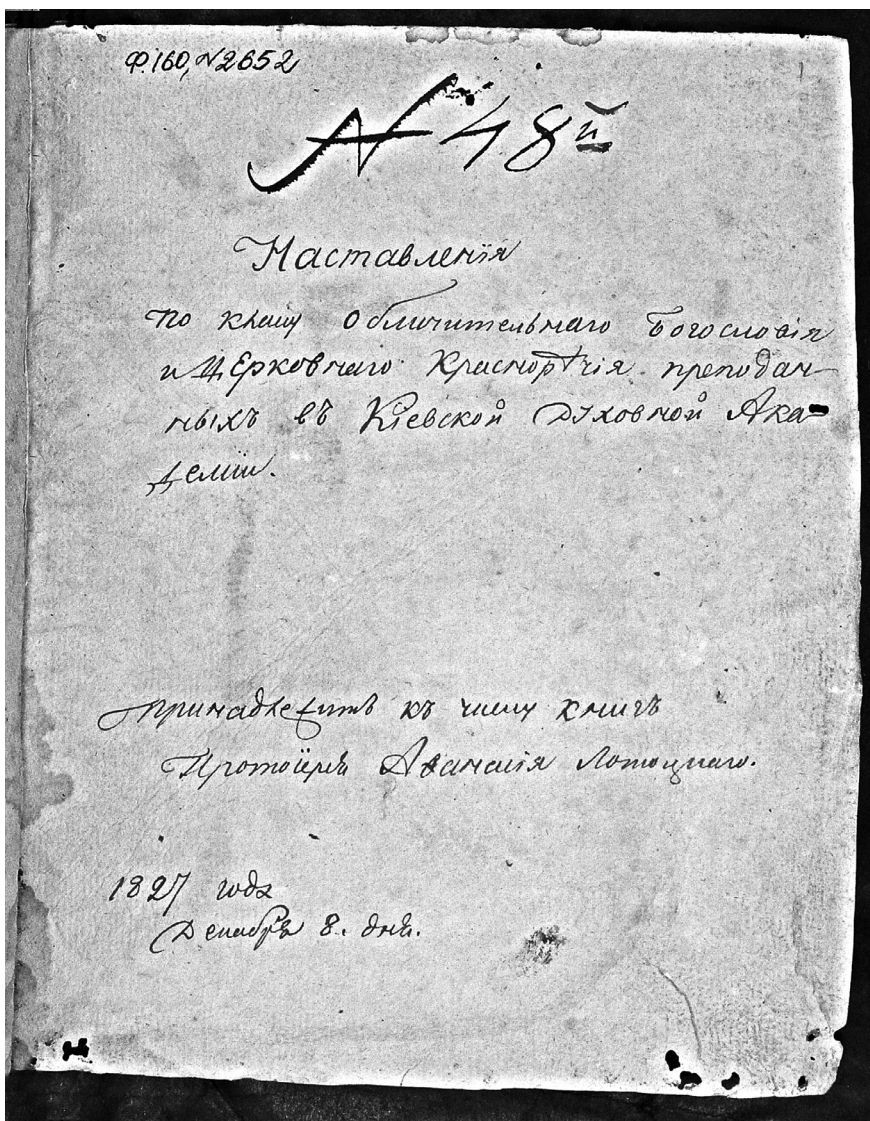 Ф.160, №2652
1
№ 48й
Наставленія
по класу Обличительнаго Богословія
и Церковнаго Краснорѣчія преподан-
ныхъ въ Кіевской Духовной Ака-
деміи.
Принадлежитъ къ числу книгъ
Протоіерея Аѳанасія Лотоцкаго.
1827 года
Декабря 8. дня.